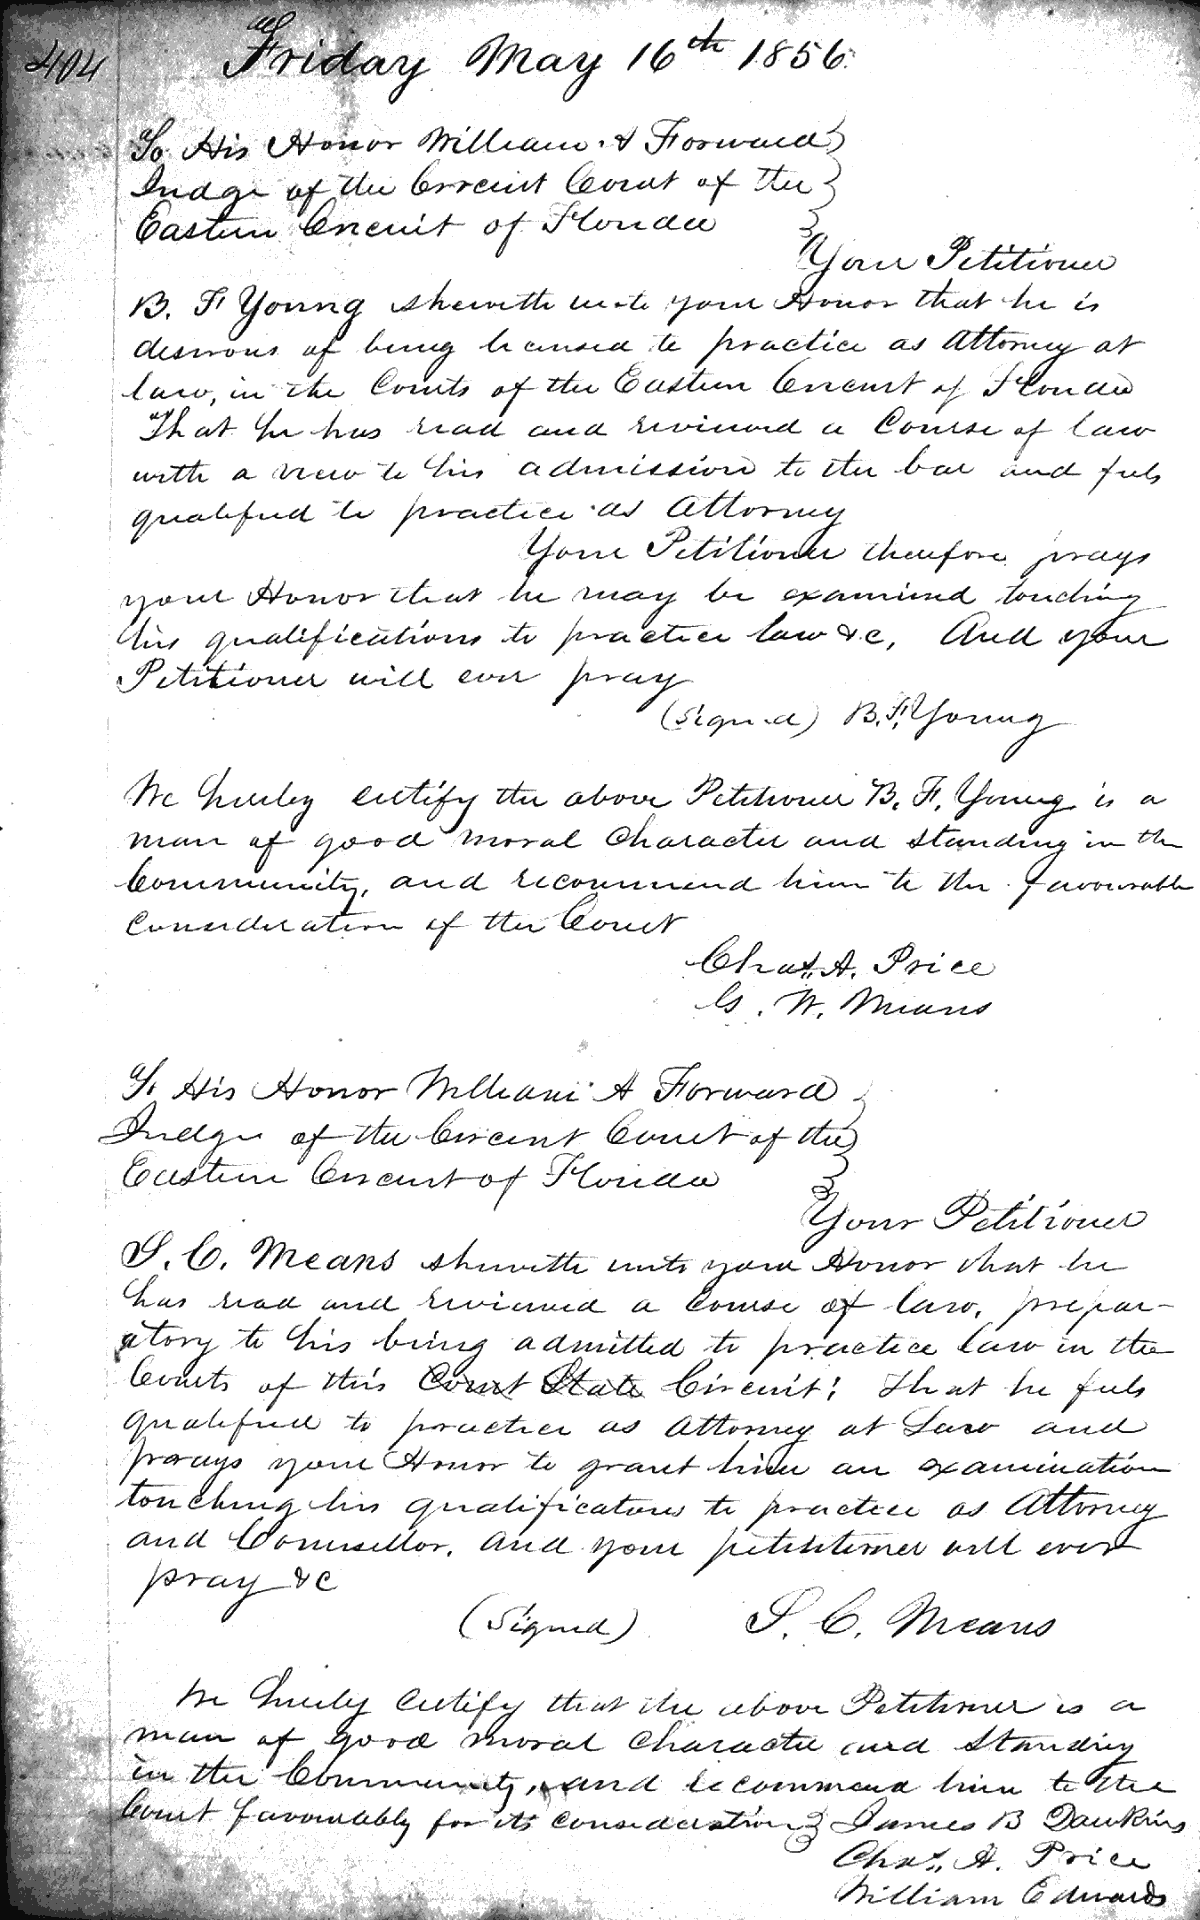 404
Friday May 16th 1856
To His Honor William A Forward
Judge of the Circuit Court of the
Eastern Circuit of Florida
Your Petitioner
B. F Young sheweth unto your Honor that he is
desirous of being licensed to practice as Attorney at
law, in the Courts of the Eastern Circuit of Florida
That he has read and reviewed a Course of law
with a view to his admission to the bar and feels
qualified to practice as Attorney
Your Petitioner therefore prays
your Honor that he may be examined touching
his qualifications to practice law &c, And your
Petitioner will ever pray
(Signed) B. F. Young
We hereby certify the above Petitioner B. F. Young is a
man of good moral character and standing in the
Community, and recommend him to the favourable
consideration of the Court
Chas. A. Price
G. W. Means
To His Honor William A Forward
Judge of the Circuit Court of the
Eastern Circuit of Florida
Your Petitioner
S. C. Means sheweth unto your Honor that he
has read and reviewed a course of law, prepar-
atory to his being admitted to practice law in the
Courts of this Court State Circuit; that he feels
qualified to practice as attorney at Law and
prays your Honor to grant him an examination
touching his qualifications to practice as Attorney
and Counsellor. and your petitioner will ever
pray &c
(Signed) S. C. Means
We hereby certify that the above Petitioner is a
man of good moral character and standing
in the Community, and recommend him to the
Court favourably for its consideration James B Dawkins
Chas. A. Price
William Edwards